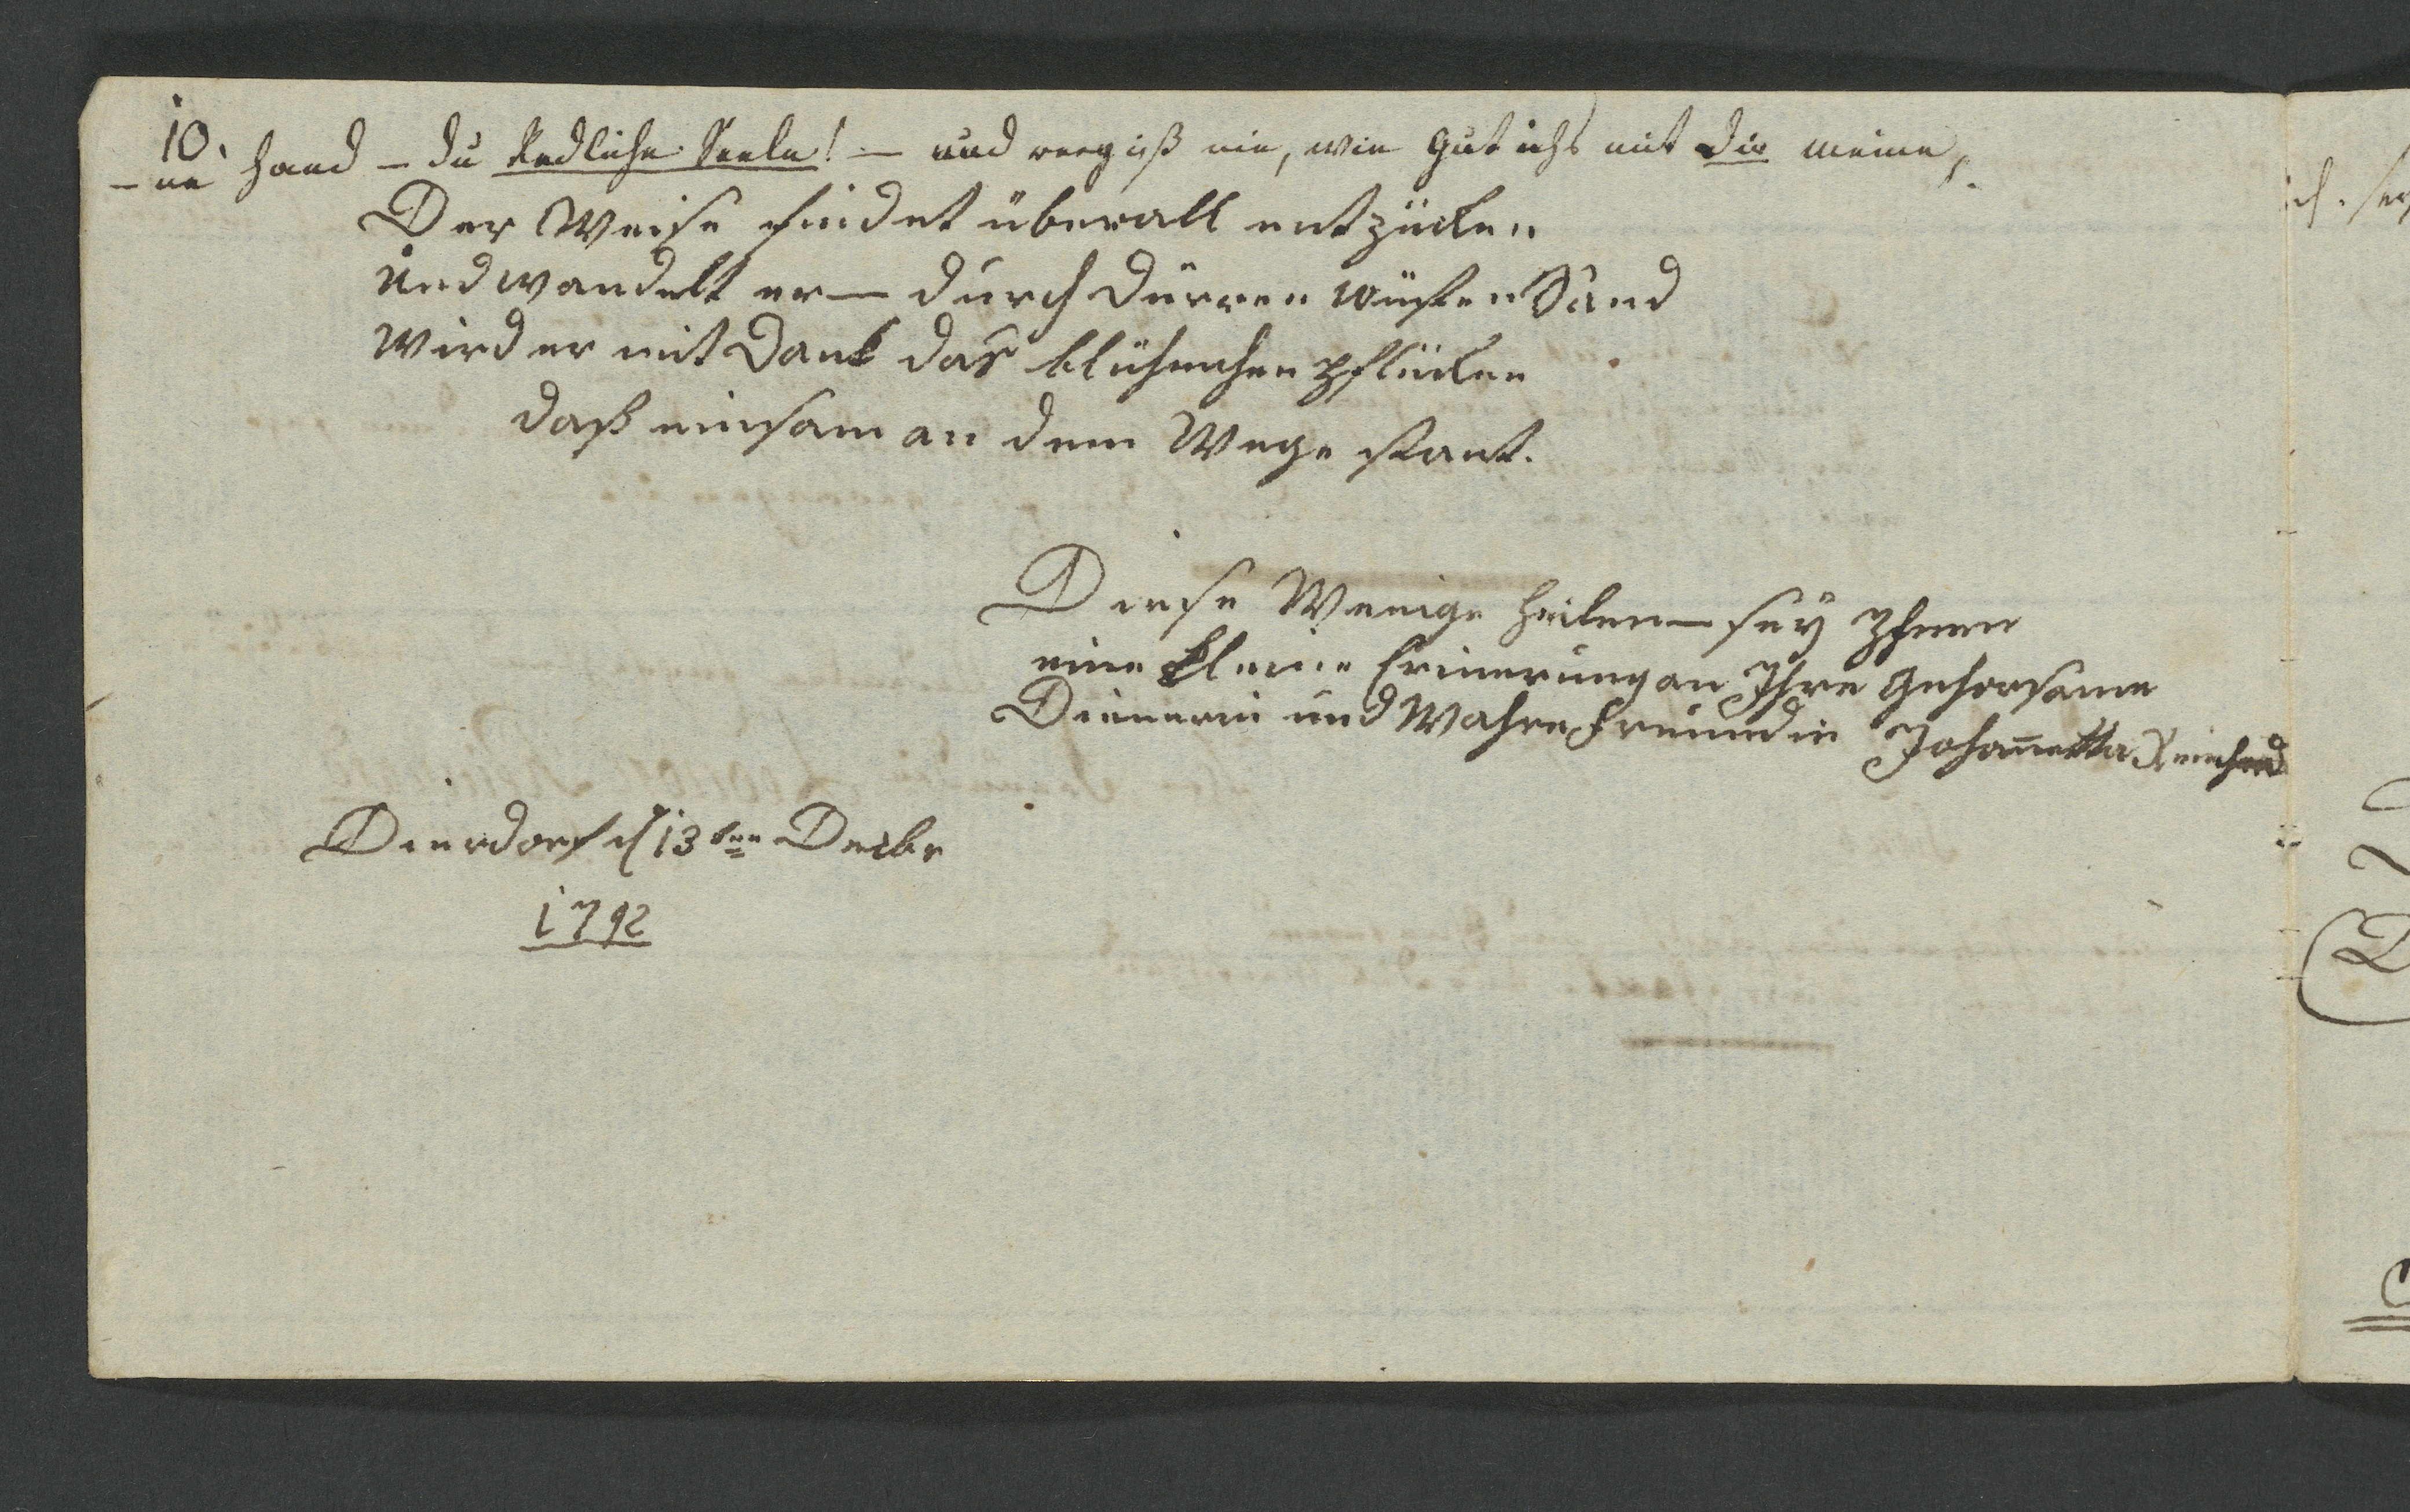 10.
-ne Hand - du Redliche Seele! - und vergiß nie, wie gut ichs mit Dir meine,.
Der Weise findet überall entzücken
Und wandelt er — durch dürren wüsten Sand
Wird er mit Dank das blühmchen pflücken
daß einsam an dem Wege stant.
Diese Wenige Zeilen — sey Ihnen
eine kleine Erinerung an Ihre gehorsame
Dienerin und Wahre Freundin Johan̄etta Reinhard
Dierdorf d 13ten Decbr
1792